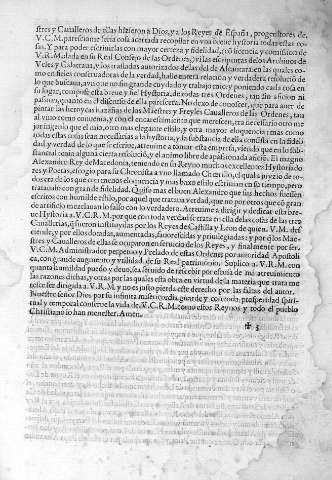 stres y Caualleros de ellas hizieron a Dios, y a los Reyes de España, progenitores de.
V.C.M. paresciome seria cosa acertada recopilar en vna breue hystoria todas estas co-
sas. Y para poder escriuirlas con mayor certeza y fidelidad, có licencia y comission de
V.R.M. dada en su Real Consejo de las Ordenes, vi las escripturas de los Archiuos de
Vcles y Calatraua, y los traslados autorizados de las del de Alcantara en las quales co-
mo en fieles conseruadoras de la verdad, halle materia relación y verdadera resolució de
lo que buscaua, de que no sin grande cuydado y trabajo mio y poniendo cada cosa en
su lugar, compuse esta breue y fiel Hystoria, de todas tres Ordenes, tan sin aficion ni
passion, quanto en el discurso de ella parescera. No dexo de conoscer, que para auer de
pintar las heroycas hazañas de los Maestres y Freyles Caualleros de las Ordenes, tan
al viuo como conuenia, y con el encarescimiento que merescen, era necessario otro me
jor ingenio que el mio, otro mas elegante estilo, y otra mayor eloquencia: mas como
todas estas cosas sean accessorias a la hystoria, y la substancia de ella consista en la fideli-
dad y verdad de lo que se escriue, atreuime a tomar esta empresa, viendo que en lo sub-
stancial tenia alguna cierta resolució, y el animo libre de apassionada ancia. El magno
Alexandro Rey de Macedonia, teniendo en su Reyno muchos excellentes Hystoriado-
res y Poetas, escogio para su Choronista a vno llamado Cherillo, el qual a juyzio de o-
tros era de los que con menos eloquencia y mas baxo estilo escriuian en su tiempo, pero
trataualo con grande fidelidad. Quiso mas el buen Alexandro que sus hechos fuessen
escritos con humilde estilo, por aquel que trataua verdad, que no por otros que có gran
de artificio mezclauan lo falso con lo verdadero. Atreuime a dirigir y dedicar esta bre-
ue Hystoria a. V.C.R.M. por que con toda verdad se trata en ella de las cosas de las tres
Cauallerias, que fueron instituydas por los Reyes de Castilla y Leon de quien. V.M. de-
sciende, y por ellos dotadas, aumentadas, fauorescidas y priuilegiadas: y por que los Mae-
stres y Caualleros de ellas se ocuparon en seruicio de los Reyes, y finalmente por ser.
V.C.M. Administrador perpetuo y Prelado de estas Ordenes por autoridad Apostoli-
ca, con grande augmento y vtilidad de su Real patrimonio. Suplico a. V.R.M. con
quanta humildad puedo y deuo, sea seruido de rescebir por escusa de mi atreuimiento
las razones dichas, y otras por las quales esta obra en virtud de la materia que trata me-
resce ser dirigida a. V.R.M. y no es justo pierda este derecho por las faltas del autor.
Nuestro señor Dios por su infinita misericordia, guarde y con toda prosperidad spiri-
tual y temporal conserue la vida de. V.C.R.M. como estos Reynos y todo el pueblo
Christiano lo han menester. Amen.
✠ 3